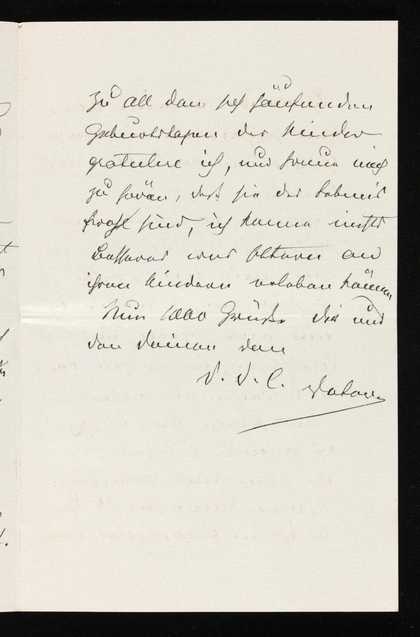 Zu all den sich häufenden
Geburtstagen der Kinder
gratulire ich, und freue mich
zu hören, daß sie des Lebens
froh sind, ich kenne nichts
Besseres was Eltern an
ihren Kindern erleben können
Nun 1000 Grüße Dir und
den Deinen von
D. D. L. Vater